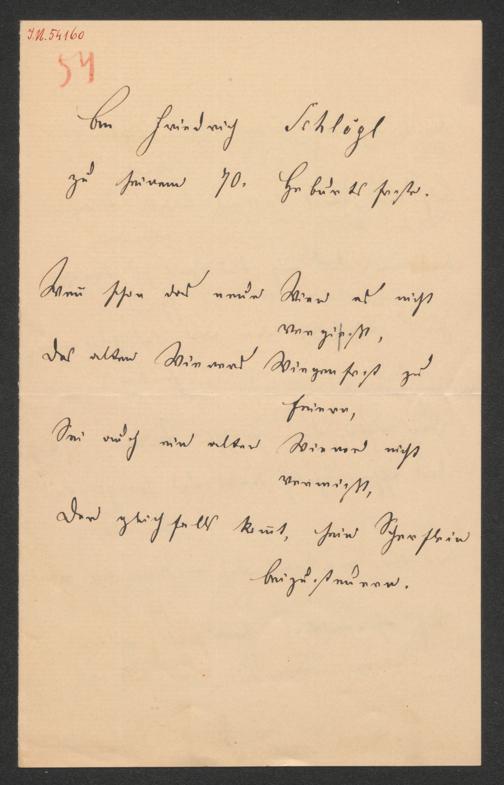 J.N. 54160
54
Friedrich Schlögl
zu seinem 70. Geburtsfeste.
Wenn schon das neue Wien es nicht
vergißt,
Des alten Wieners Wiegenfest zu
feiern,
Sei auch ein alter Wiener nicht
vermißt,
Der gleichfalls kom̅t, sein Scherflein
beizusteuern.